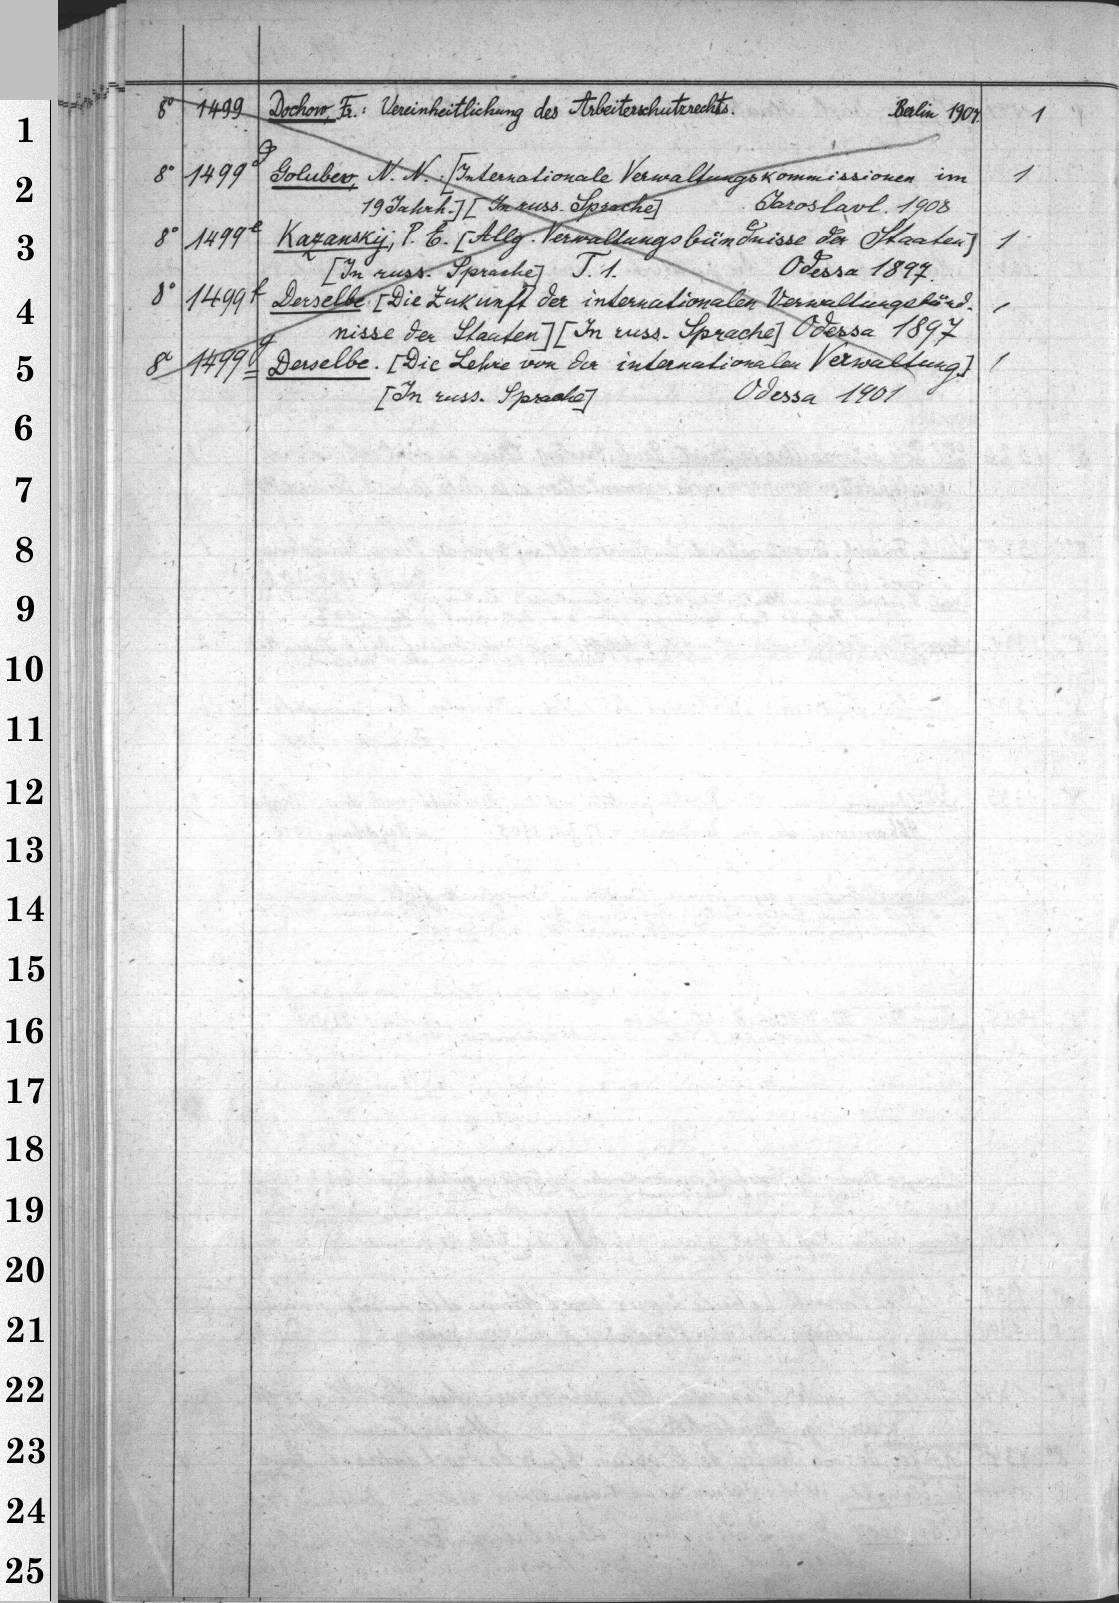 8° 1499 Dochow, Fr.: Vereinheitlichung des Arbeiterschutzrechts. Berlin 1907. 1
8° 1499 d Golubev, N. N.: [Internationale Verwaltungskommissionen im 1
19 Jahrh.] [In russ. Sprache] Jaroslavl. 1908
8° 1499 e Kazanskij, P. E. [Allg. Verwaltungsbündnisse der Staaten] 1
[In russ. Sprache] T. 1. Odessa 1897.
8° 1499 f Derselbe [Die Zukunft der internationalen Verwaltungsbünd- 1
nisse der Staaten] [In russ. Sprache] Odessa 1897
8° 1499 g Derselbe. [Die Lehre von der internationalen Verwaltung] 1
[In russ. Sprache] Odessa 1901
1
2
3
4
5
6
7
8
9
10
11
12
13
14
15
16
17
18
19
20
21
22
23
24
25